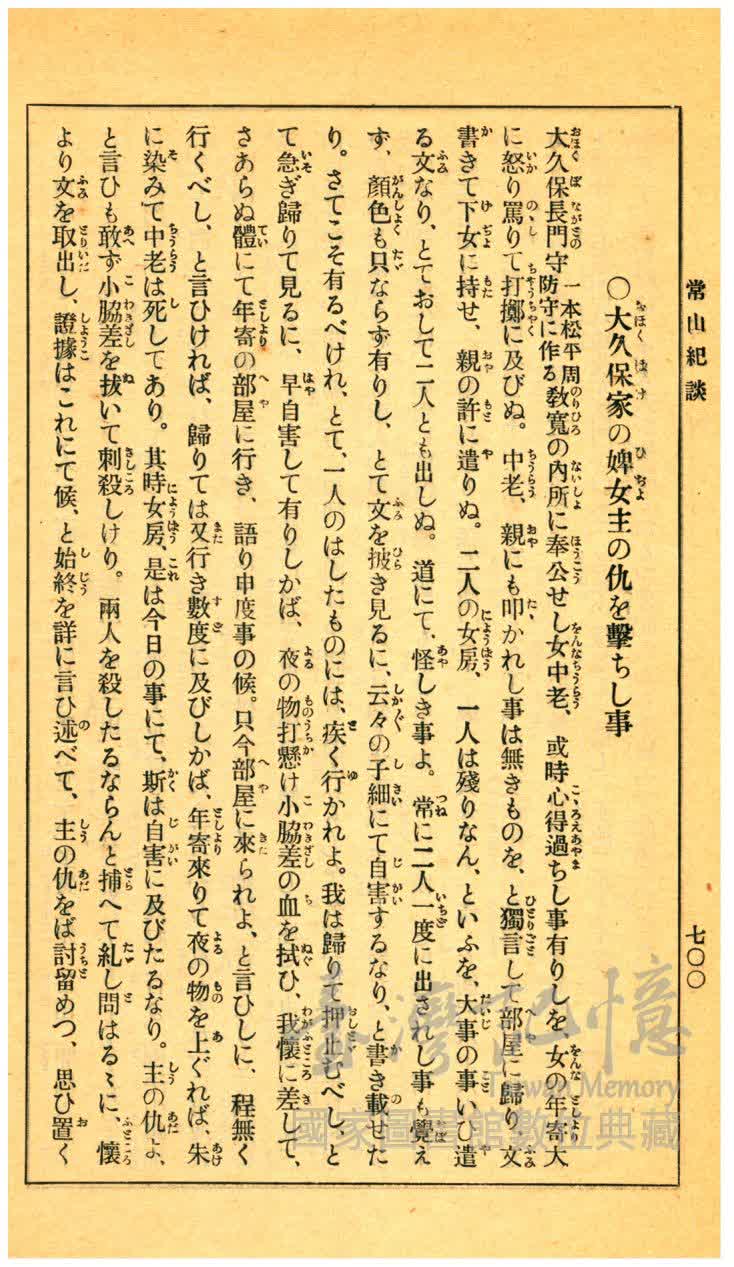 常山紀談
七〇〇
〇大久保家の婢女主の仇を擊ちし事
大久保長門守一本松平周防守に作る敎寬の內所に奉公せし女中老、或時心得過ちし事有りしを、女の年寄大
に怒り罵りて打擲に及びぬ。中老、親にも叩かれし事は無きものを、と獨言して部屋に歸り、文
書きて下女に持せ、親の許に遣りぬ。二人の女房、一人は殘りなん、といふを、大事の事いひ遣
る文なり、とておして二人とも出しぬ。道にて、怪しき事よ。常に二人一度に出されし事も覺え
ず、顏色も只ならず有りし、とて文を披き見るに、云々の子細にて自害するなり、と書き載せた
り。さてこそ有るべけれ、とて、一人のはしたものには、疾く行かれよ。我は歸りて押止むべし、と
て急ぎ歸りて見るに、早自害して有りしかば、夜の物打懸け小脇差の血を拭ひ、我懷に差して、
さあらぬ體にて年寄の部屋に行き、語り申度事の候。只今部屋に來られよ、と言ひしに、程無く
行くべし、と言ひければ、歸りては又行き數度に及びしかば、年寄來りて夜の物を上ぐれば、朱
に染みて中老は死してあり。其時女房、是は今日の事にて、斯は自害に及びたるなり。主の仇よ、
と言ひも敢ず小脇差を拔いて刺殺しけり。兩人を殺したるならんと捕へて糺し問はるゝに、懷
より文を取出し、證據はこれにて候、と始終を詳に言ひ述べて、主の仇をば討留めつ、思ひ置く
臺灣記憶
Taiwan Memory
國家圖書館數位典藏